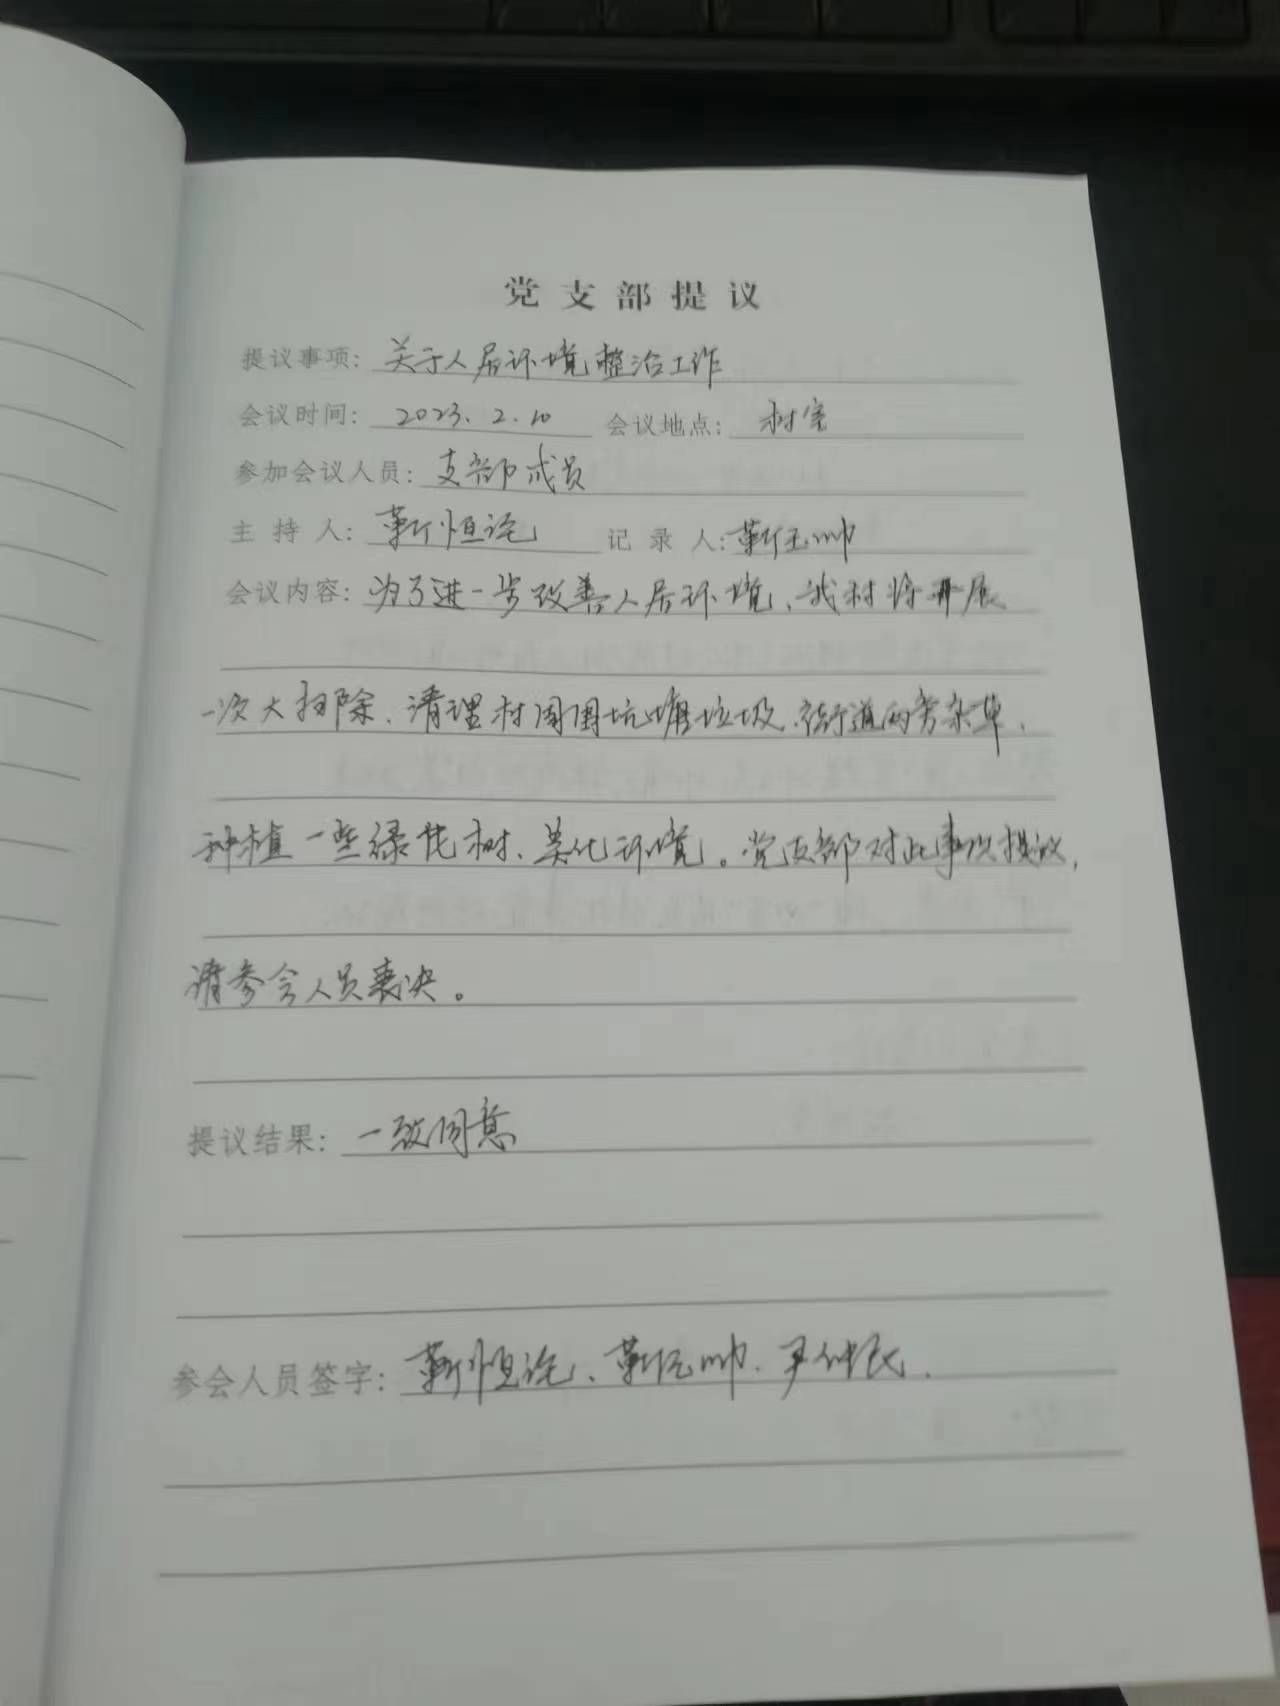 党支部提议
提议事项: 关于人居环境整治工作
会议时间: 2023.2.10 会议地点: 村室
参加会议人员: 支部成员
主持人: 靳恒 记录人: 靳玉帅
会议内容: 为了进一步改善人居环境、我村将开展
一次大扫除、清理村周围坑塘垃圾、街道两旁杂草、
种植一些绿化树、美化环境。党支部对此事项提议,
请参会人员表决。
提议结果: 一致同意
参会人员签字: 靳恒、靳玉帅、尹仲民.